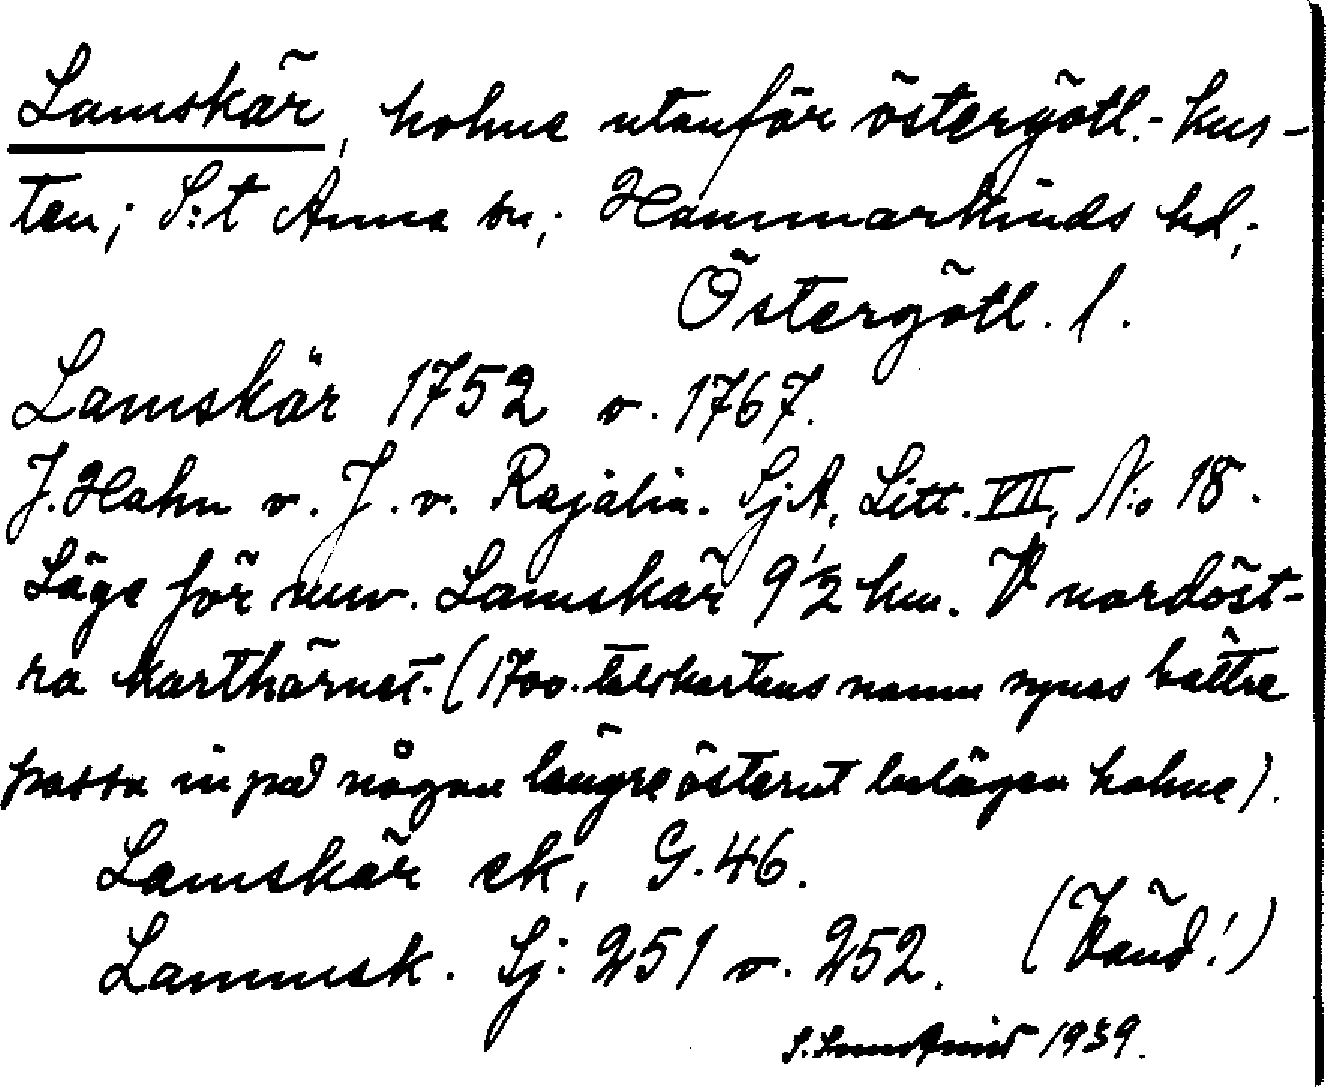 Lamskär, holme utanför östergötl.-kus-
ten; S:t Anna sn; Hammarkinds hd;
Östergötl. l.
Lamskär 1752 o. 1767.
J. Hahn o. J. v. Rajalin. Sj.A, Litt. VII, N:o 18.
Läge för nuv. Lamskär 9 1/2 km. V nordöst-
ra karthörnet. (1700-talskartans namn synas bättre
passa in på någon längre österut belägen holme).
Lamskär ek, G. 46.
Lammsk. Sj: 251 o. 252. (Vänd!)
1939.